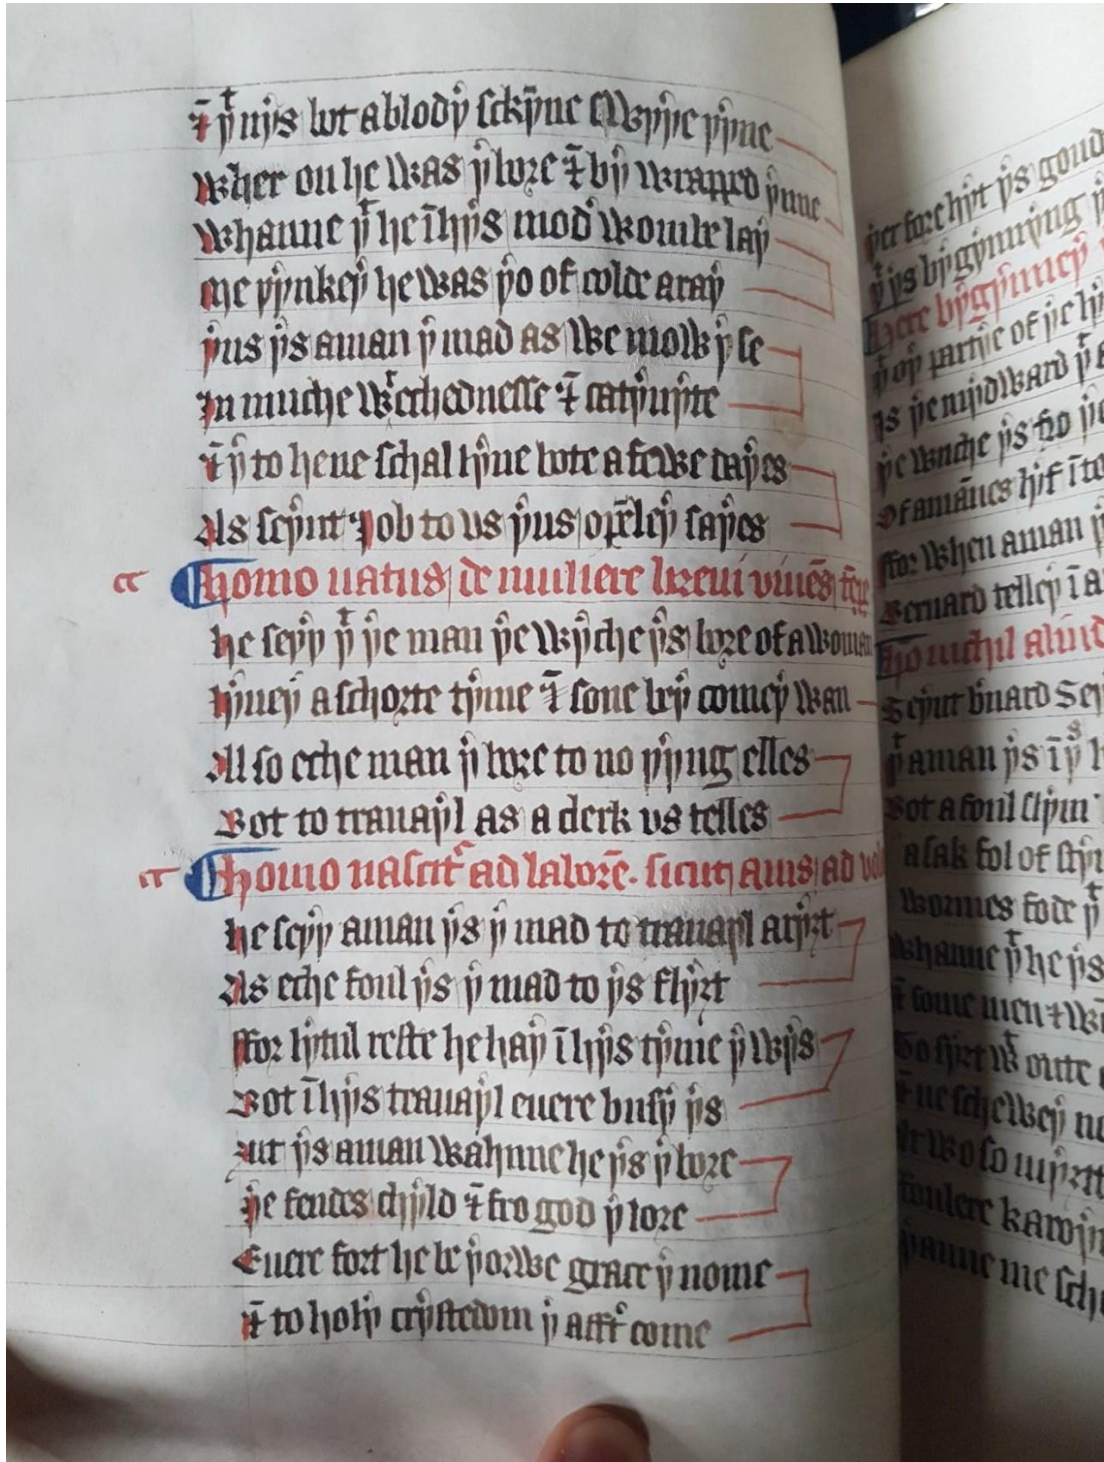 ⁊̄ þᵗ nys but a blody sckynne swyþe þynne
Wher on he was ybore ⁊̄ by wrapped þynne
Whanne þᵗ he ī hys modʼ wombe lay
Me þynkeþ he was þo of colde aray
Þus ys aman y mad as we mowe yse
In muche wrechednesse ⁊̄ catyuyte
⁊̄ þᵗ to heue schal lyue bote a fewe dayes
Als seynt Job to us þus opēley sayes
Homo natus de muliere breui viuēs tēpe
He seyþ þᵗ þe man þe wyche ys bore of a woman
lyueþ a schorte tyme ⁊̄ sone bey comeþ wan
All so eche man y bore to no þyng elles
Bot to trauayl as a clerk us telles
Homo nascitʳ ad laborē. sicut auis ad vol
He seyþ aman ys y mad to trauayl aryzt
Als eche foul ys y mad to ys flyzt
ffor lytul reste he haþ ī hys tyme y wys
Bot ī hys trauayl euere busy ys
Zut ys aman wahnne he ys y bore
Þe fendes chyld ⁊̄ fro god y lore
Euere fort he be þorwe grace y nome
⁊̄ to holy crystedom y aftʳ come
þer fore hyt ys goud
ys bygynnyng
Here bygynneþ
partye of þe
As þe mydward
þe wuche ys fro þe
Of amānes lyf ī to
ffor when aman
Bernard telleþ ī a
Ho nichil aliud
Seynt bʼnard Sey
aman ys ī
Bot a foul slym
a sak fol of
wormes fode
Whanne þᵗ he ys
⁊̄ some men ⁊
oute
⁊̄ ne scheweþ no
wo so
foulere
Þanne me sch